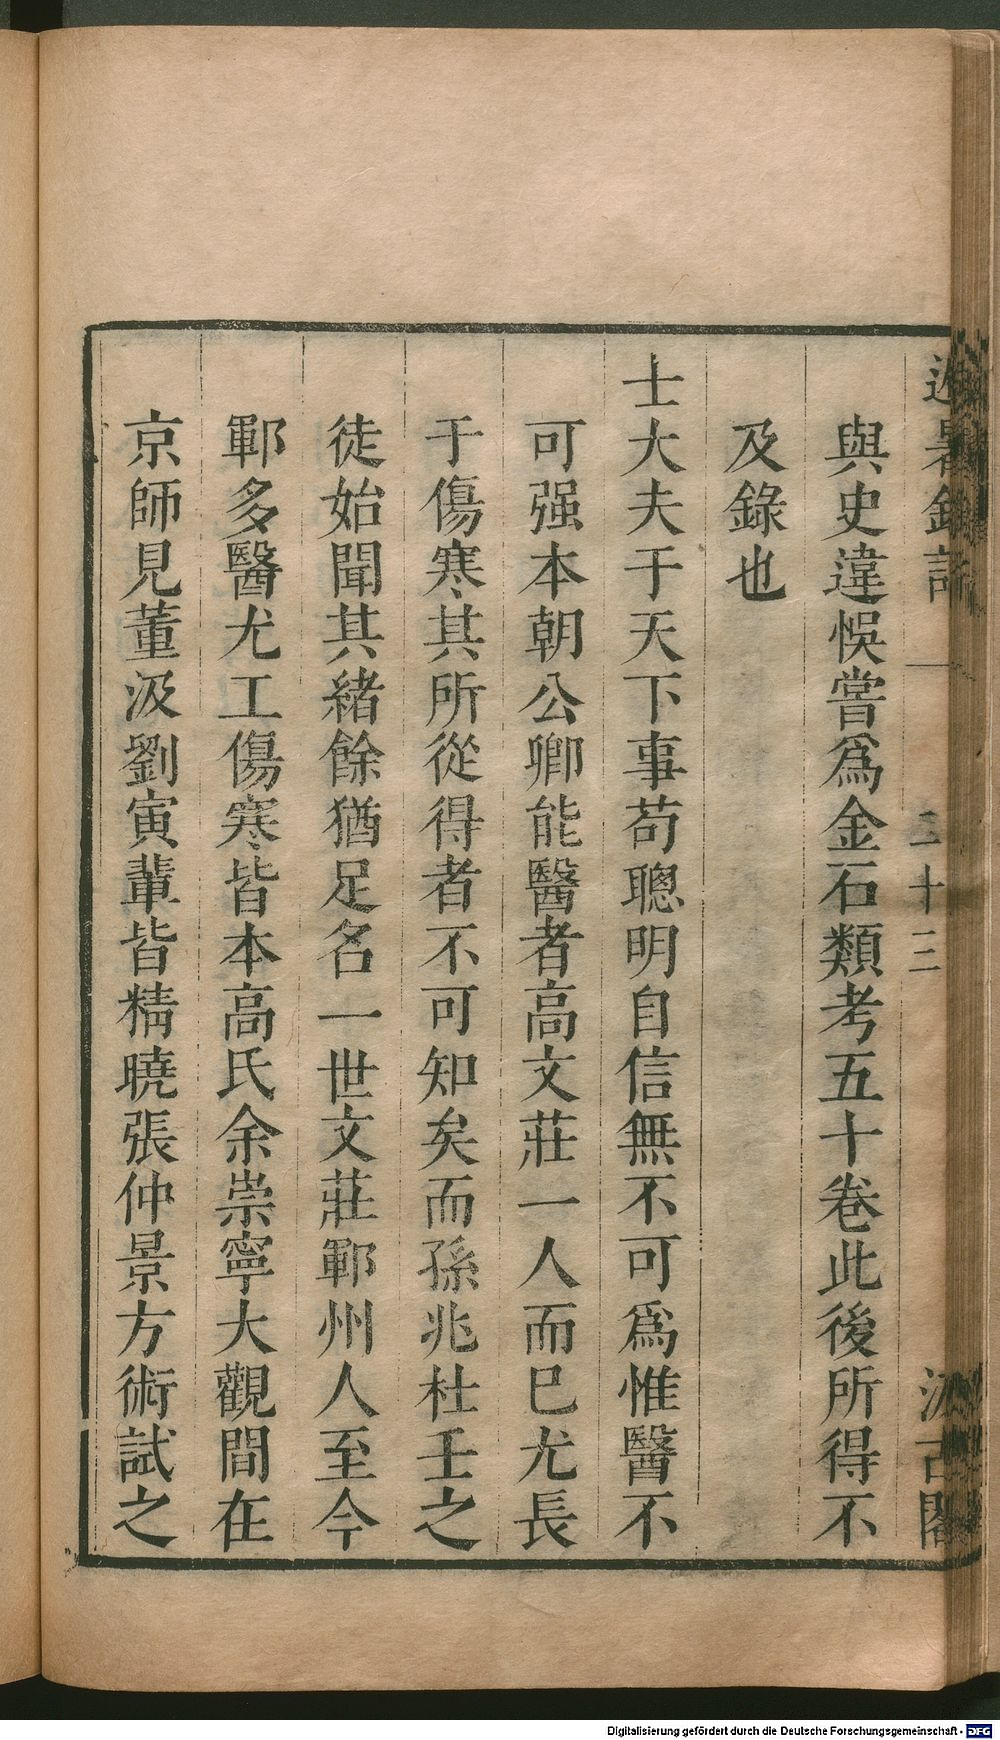 避暑錄話 一 三十三 汲古閣
與史違悞嘗爲金石類考五十卷此後所得不
及錄也
士大夫于天下事苟聰明自信無不可爲惟醫不
可强本朝公卿能醫者高文莊一人而巳尤長
于傷寒其所從得者不可知矣而孫兆杜壬之
徒始聞其緒餘猶足名一世文莊鄆州人至今
鄆多醫尤工傷寒皆本高氏余崇寧大觀間在
京師見董汲劉寅輩皆精曉張仲景方術試之
Digitalisierung gefördert durch die Deutsche Forschungsgemeinschaft - DFG